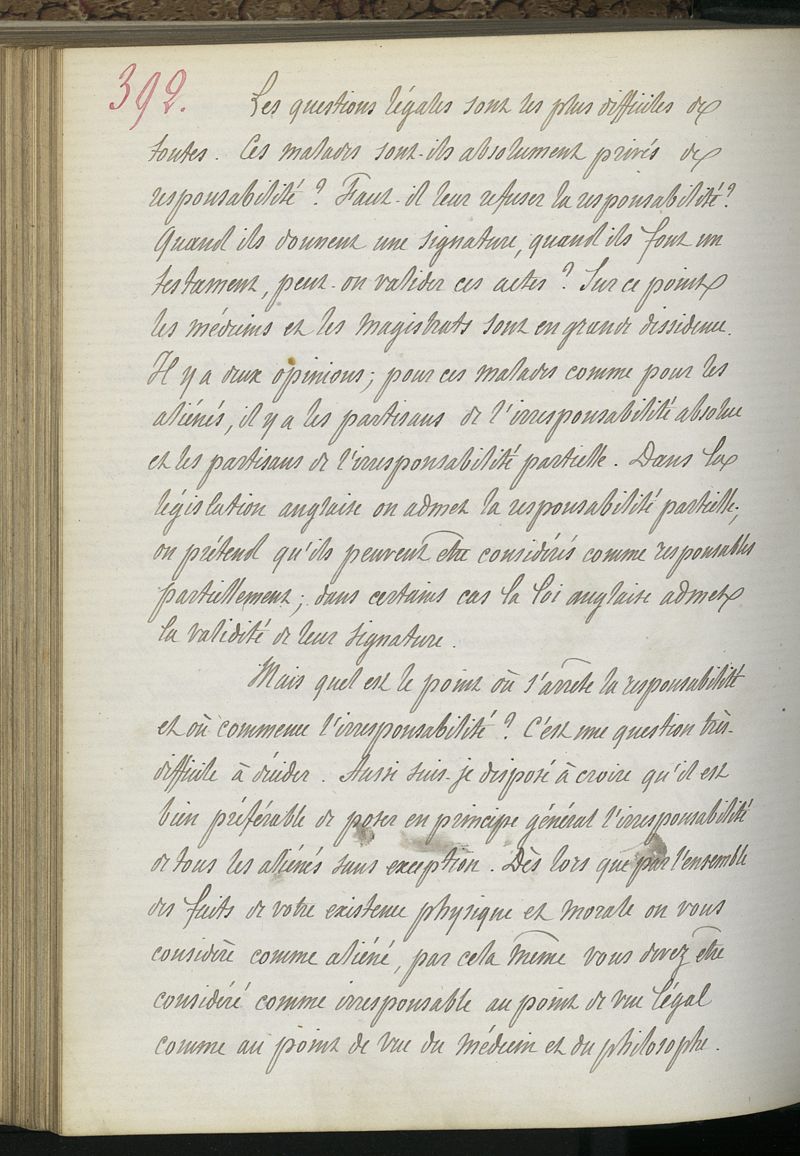 392.
Les questions légales sont les plus difficiles de
toutes. Ces malades sont-ils absolument privés de
responsabilité ? Faut-il leur refuser la responsabilité ?
Quand ils donnent une signature, quand ils font un
testament, peut-on valider ces actes ? Sur ce point
les médecins et les magistrats sont en grande dissidence.
Il y a deux opinions; pour ces malades comme pour les
aliénés, il y a les partisans de l'irresponsabilité absolue
et les partisans de l'irresponsabilité partielle. Dans la
législation anglaise on admet la responsabilité partielle;
on prétend qu'ils peuvent être considérés comme responsables
partiellement; dans certains cas la loi anglaise admet
la validité de leur signature.
Mais quel est le point où s'arrête la responsabilité
et où commence l'irresponsabilité ? C'est une question très-
difficile à décider. Aussi suis-je disposé à croire qu'il est
bien préférable de poser en principe général l'irresponsabilité
de tous les aliénés sans exception. Dès lors que par l'ensemble
des faits de votre existence physique et morale on vous
considère comme aliéné, par cela même vous devez être
considéré comme irresponsable au point de vue légal
comme au point de vue du médecin et du philosophe.